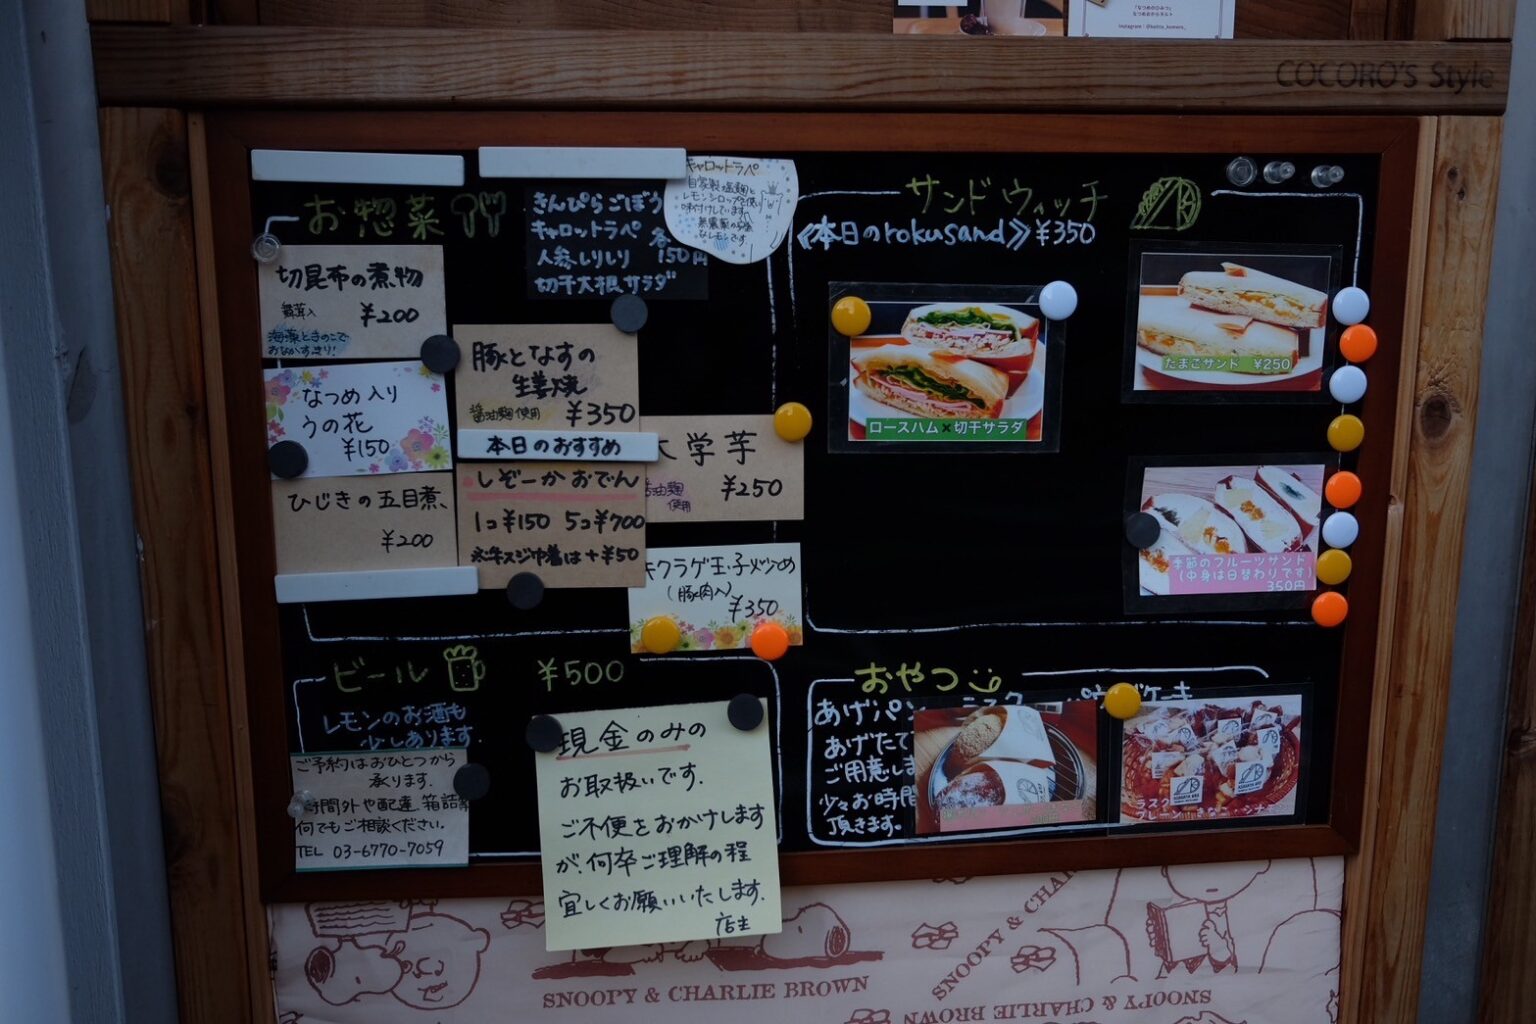 「なつめのひみつ」
COCORO'S Style
お惣菜
切昆布の煮物
舞茸入
¥200
海藻ときのこで
おなかすっきり!
なつめ入り
うの花
¥150
ひじきの五目煮
¥200
きんぴらごぼう
キャロットラペ 各
人参しりしり 150円
切干大根サラダ
キャロットラペ
自家製塩麹と
レモンシロップを使い
味付けしています
なレモンです。
豚となすの
生姜焼
醤油麹使用 ¥350
本日のおすすめ
しぞーかおでん
1コ¥150 5コ¥700
牛スジ巾着は+¥50
大学芋
醤油麹
使用
¥250
キクラゲ玉子炒め
(豚肉入)
¥350
サンドウィッチ
《本日のrokusand》¥350
ロースハム×切干サラダ
たまごサンド ¥250
季節のフルーツサンド
(中身は日替わりです)
350円
ビール ¥500
レモンのお酒も
少しあります。
ご予約はおひとつから
承ります。
時間外や配達 箱詰
何でもご相談ください。
TEL 03-6770-7059
現金のみの
お取扱いです。
ご不便をおかけします
が、何卒ご理解の程
宜しくお願いいたします。
店主
おやつ
あげパン ラスク ケーキ
あげたて
ご用意しま
少々お時間
頂きます。
ラスク
プレーン きなこ シナモン
SNOOPY & CHARLIE BROWN
SNOOPY & CHAR
SNOOPY & CHARLIE BROWN